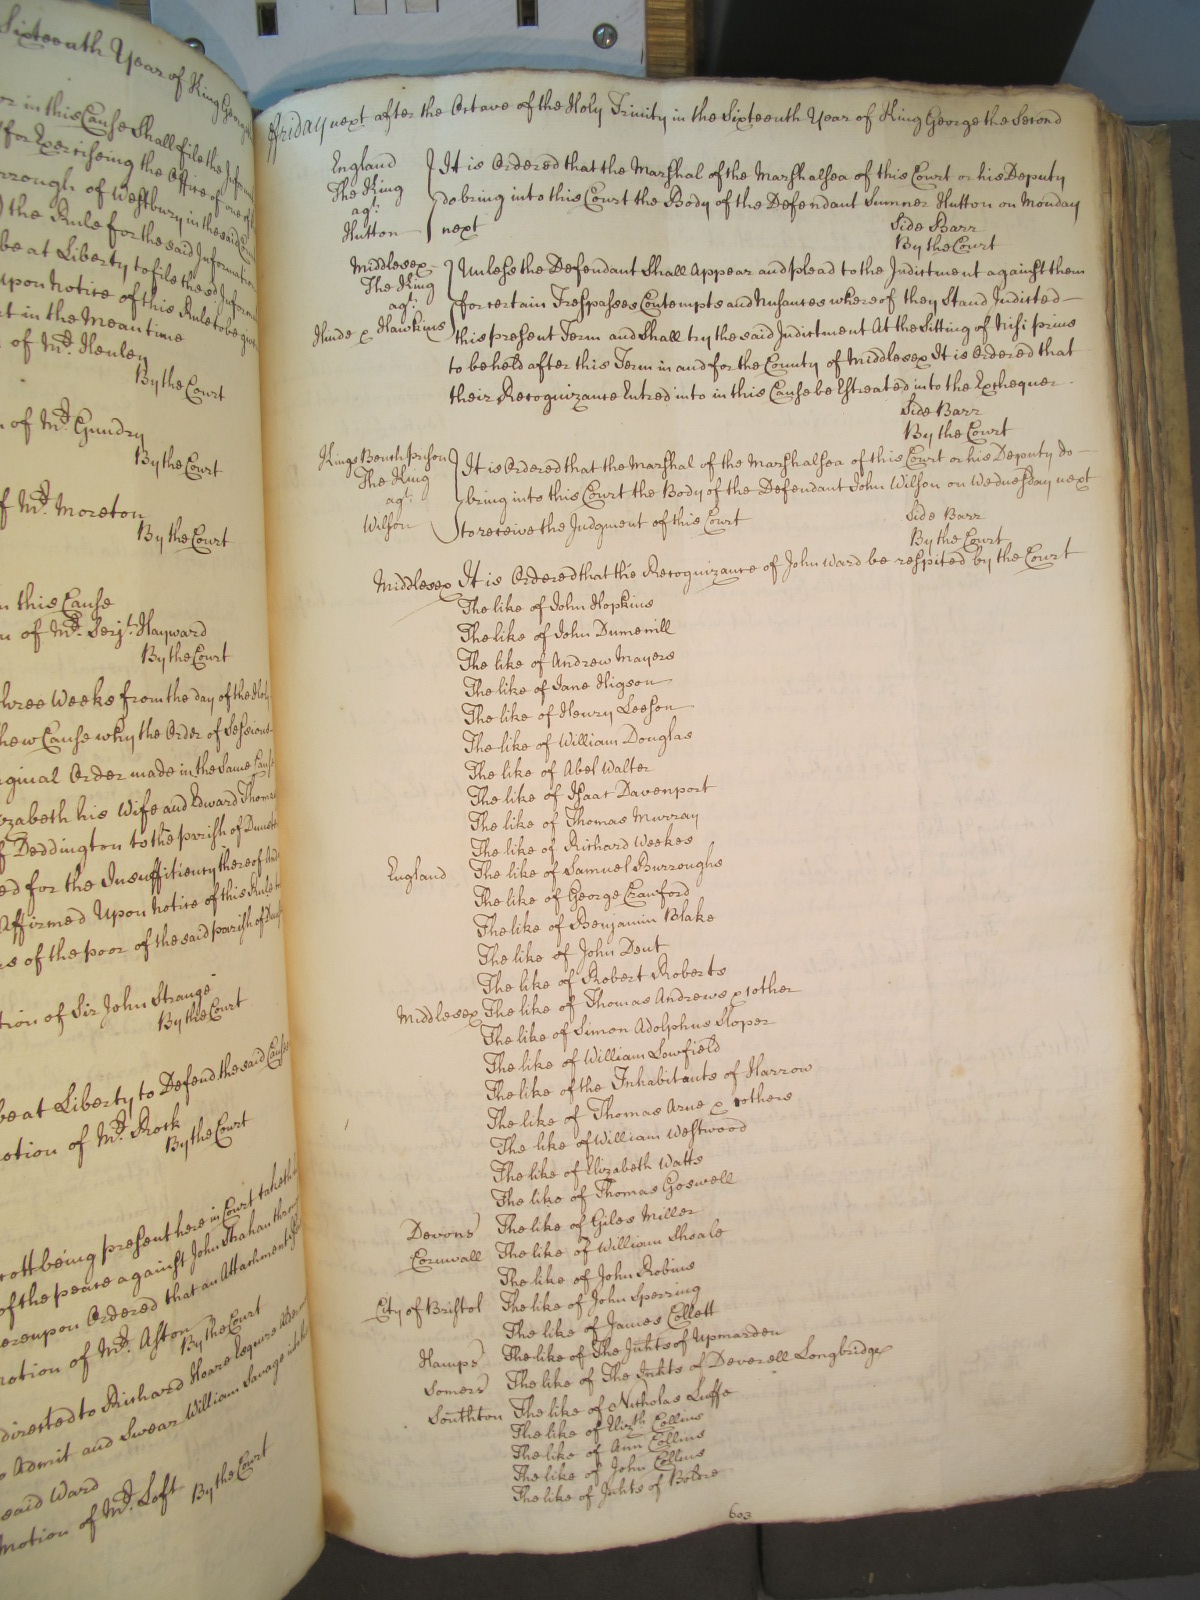 Sixteenth Year of King George
or in this Cause Shall file the Inform
for Exerciseing the Office of one of
rrough of Westbury in the said
the Rule for the said Information
be at Liberty to file the sd Inform
upon Notice of this Rule to be
rt in the Mean time
of Mr. Henley
By the Court
n of Mr. Gundry
By the Court
f Mr. Moreton
By the Court
n this Cause
n of Mr. Serjt. Hayward
By the Court
three Weeks from the day of the Holy
hew Cause why the Order of Sessions
rginal Order made in the Same
izabeth his Wife and Edward Thomas
f Deddington to the parish of
ed for the Insufficiency thereof
Affirmed Upon Notice of this Rule
rs of the poor of the said parish of
tion of Sir John Strange
By the Court
be at Liberty to Defend the said Cause
otion of Mr. Rock
By the Court
rott being present here in Court taketh
of the peace against John Strahan
ereupon Ordered that an Attachment
motion of Mr. Aston
By the Court
directed to Richard Hoare Esquire
o Admit and Swear William Savage
said Ward
Motion of Mr. Loft By the Court
Friday next after the Octave of the Holy Trinity in the Sixteenth Year of King George the Second
England
The King
agt.
Hutton
It is Ordered that the Marshal of the Marshalsea of this Court or his Deputy
do bring into this Court the Body of the Defendant Sumner Hutton on Monday
next
Side Barr
By the Court
Middlesex
The King
agt.
Hinde & Hawkins
Unless the Defendant Shall Appear and plead to the Indictment against them
for certain Trespasses Contempts and Nusances whereof they Stand Indicted
this present Term and Shall try the said Indictment At the Sitting of Nisi prius
to be held after this Term in and for the County of Middlesex It is Ordered that
their Recognizance Entred into in this Cause be Estreated into the Exchequer
Side Barr
By the Court
Kings Bench prison
The King
agt.
Wilson
It is Ordered that the Marshal of the Marshalsea of this Court or his Deputy do
bring into this Court the Body of the Defendant John Wilson on Wednesday next
to receive the Judgment of this Court
Side Barr
By the Court
Middlesex It is Ordered that the Recognizance of John Ward be respited by the Court
The like of John Hopkins
The like of John Dumenill
The like of Andrew Mayers
The like of Jane Higson
The like of Henry Leeson
The like of William Douglas
The like of Abel Walter
The like of Isaac Davenport
The like of Thomas Murray
The like of Richard Weekes
England The like of Samuel Burroughs
The like of George Crawford
The like of Benjamin Blake
The like of John Dent
The like of Robert Roberts
Middlesex The like of Thomas Andrews & 1 other
The like of Simon Adolphus Sloper
The like of William Lowfield
The like of the Inhabitants of Harrow
The like of Thomas Arne & others
The like of William Westwood
The like of Elizabeth Watts
The like of Thomas Goswell
Devons The like of Giles Miller
Cornwall The like of William Sheale
The like of John Robins
City of Bristol The like of John Sperring
The like of James Collett
Hamps The like of The Inhts of Upmarden
Somers The like of The Inhts of Deverell Longbridge
Southton The like of Nicholas Luffe
The like of Elizth Collins
The like of Ann Collins
The like of John Collins
The like of Inhts of
603